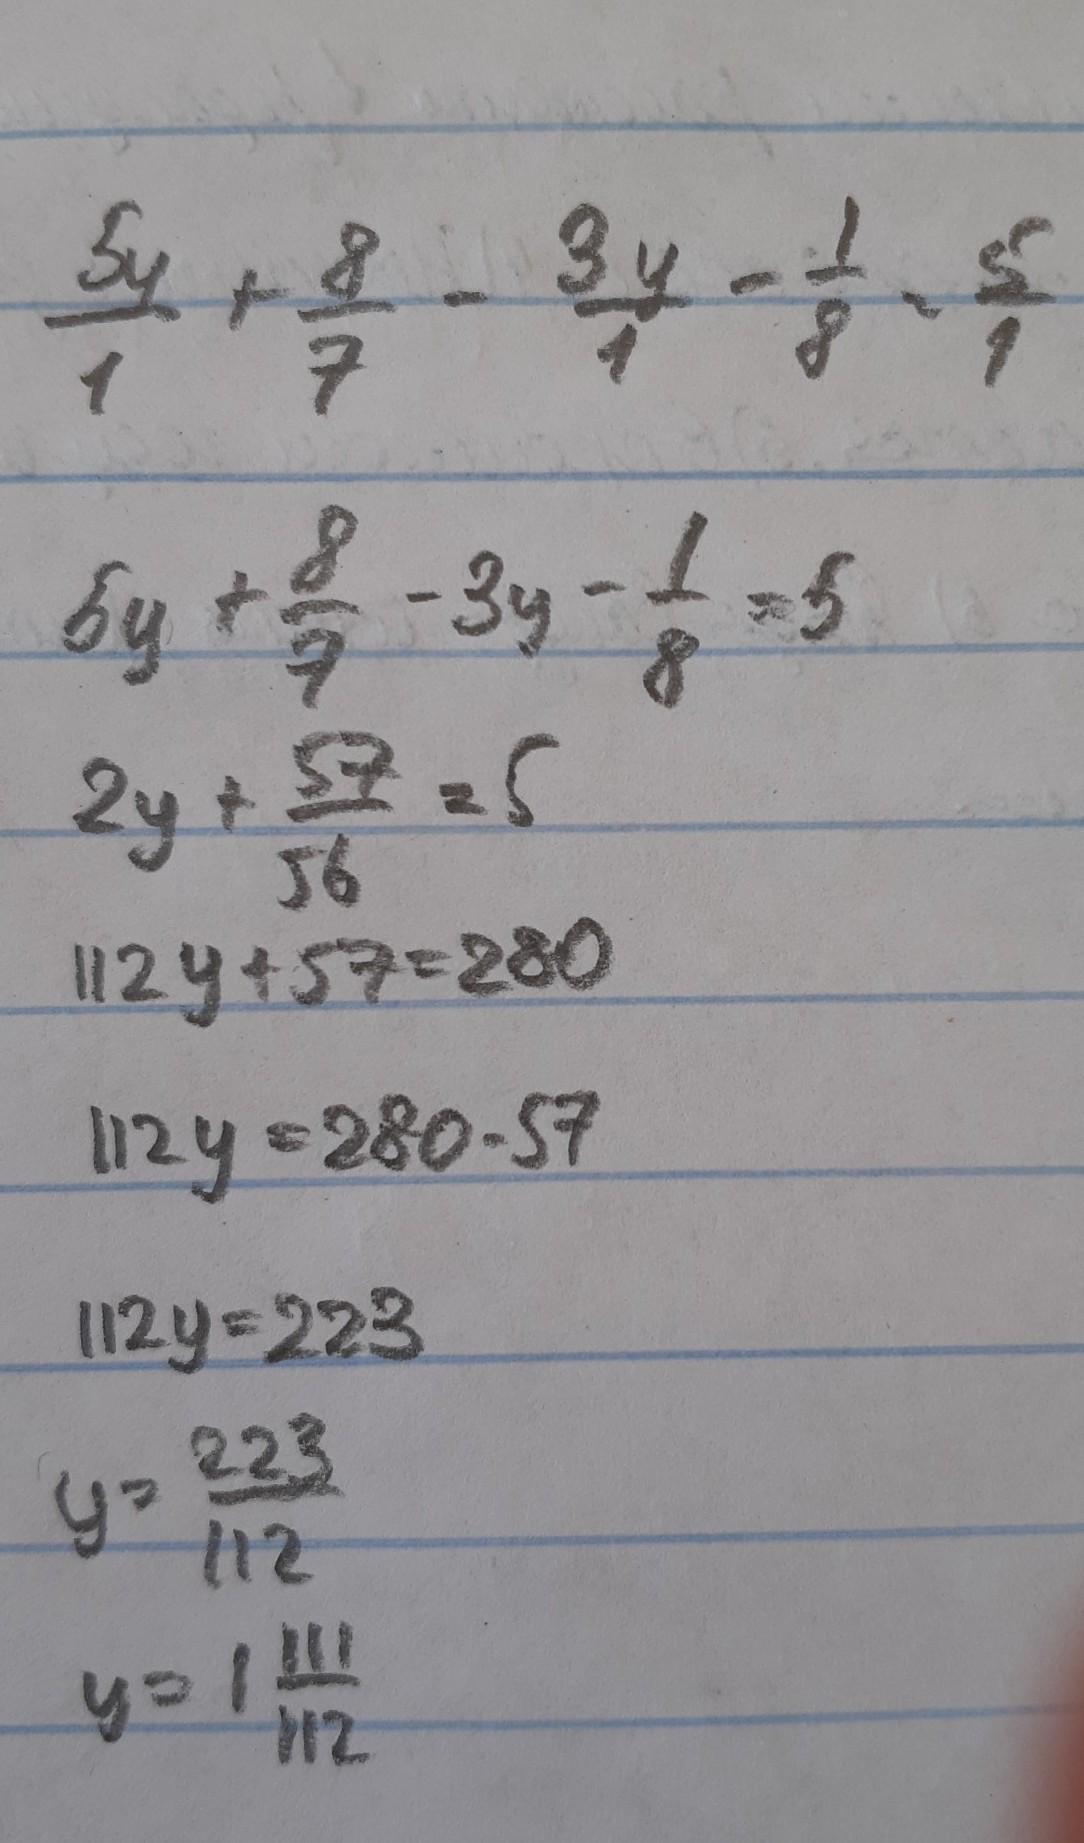 5y/1 + 8/7 - 3y/1 - 1/8 = 5/1
5y + 8/7 - 3y - 1/8 = 5
2y + 57/56 = 5
112y + 57 = 280
112y = 280 - 57
112y = 223
y = 223/112
y = 1 111/112